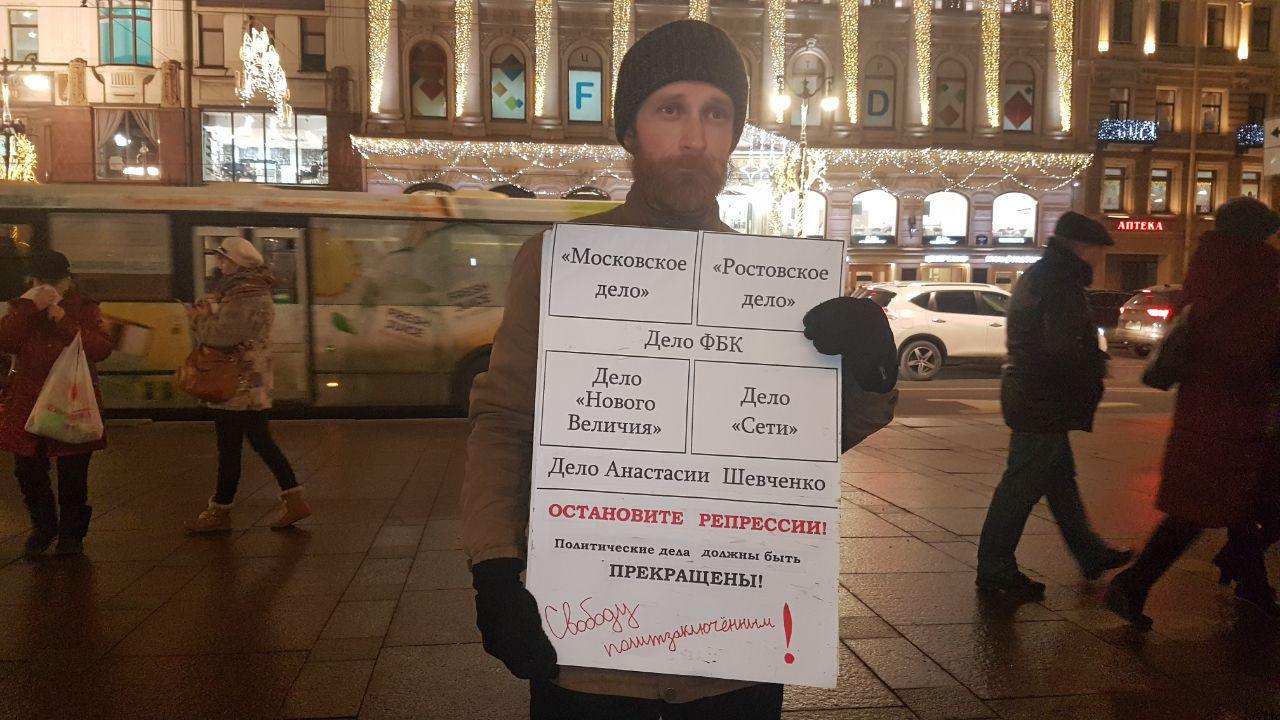 Ц
F
Т Р
D
АПТЕКА
FRESH
JUICE
«Московское
дело»
«Ростовское
дело»
Дело ФБК
Дело
«Нового
Величия»
Дело
«Сети»
Дело Анастасии Шевченко
ОСТАНОВИТЕ РЕПРЕССИИ!
Политические дела должны быть
ПРЕКРАЩЕНЫ!
Свободу
политзаключённым !